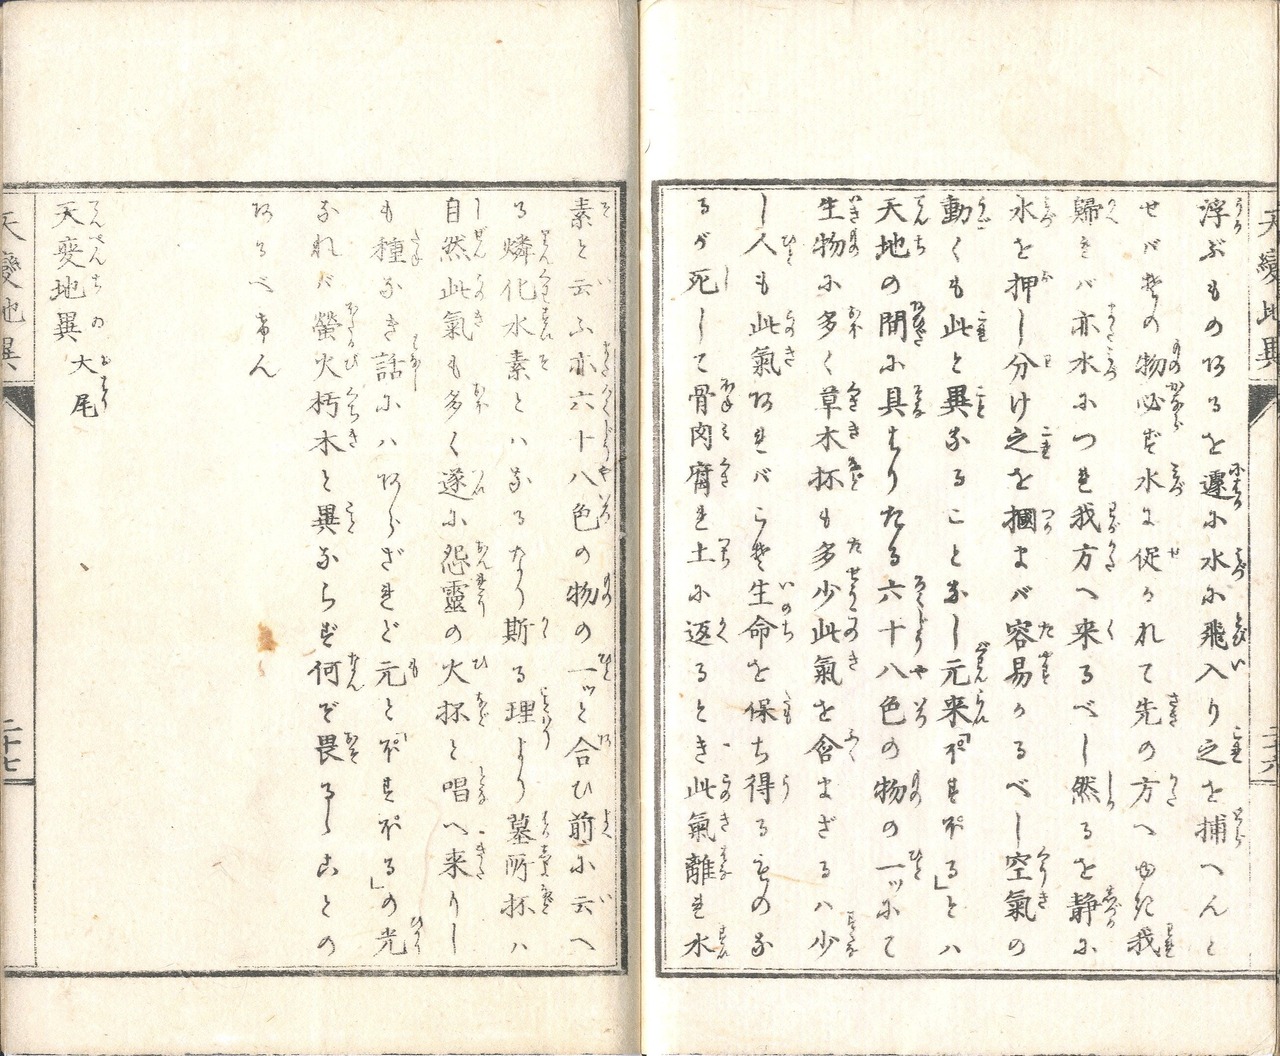 浮ぶものあるを遽に水に飛入り之を捕へんと
せバ其の物必ず水に促されて先の方へ逃れ我
歸きバ亦水につれ我方へ来るべし然るを静に
水を押し分け之を摑まバ容易かるべし空氣の
動くも此と異なることなし元来「ホスホル」とハ
天地の間に具はりたる六十八色の物の一ツにて
生物に多く草木抔も多少此氣を含まざるハ少
し人も此氣あれバこそ生命を保ち得るものな
るが死して骨肉腐れ土に返るとき此氣離れ水
素と云ふ亦六十八色の物の一ツと合ひ前に云へ
る燐化水素とハなるなり斯る理より墓所抔ハ
自然此氣も多く遂に怨靈の火抔と唱へ来りし
も種なき話にハあらざれど元と「ホスホル」の光
なれバ螢火朽木と異ならず何ぞ畏るゝことの
あるべけん
天変地異 大尾
天變地異
二十六
天變地異
二十七